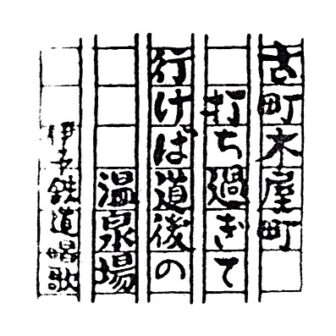 古町木屋町
打ち過ぎて
行けば道後の
温泉場
伊予鉄道唱歌